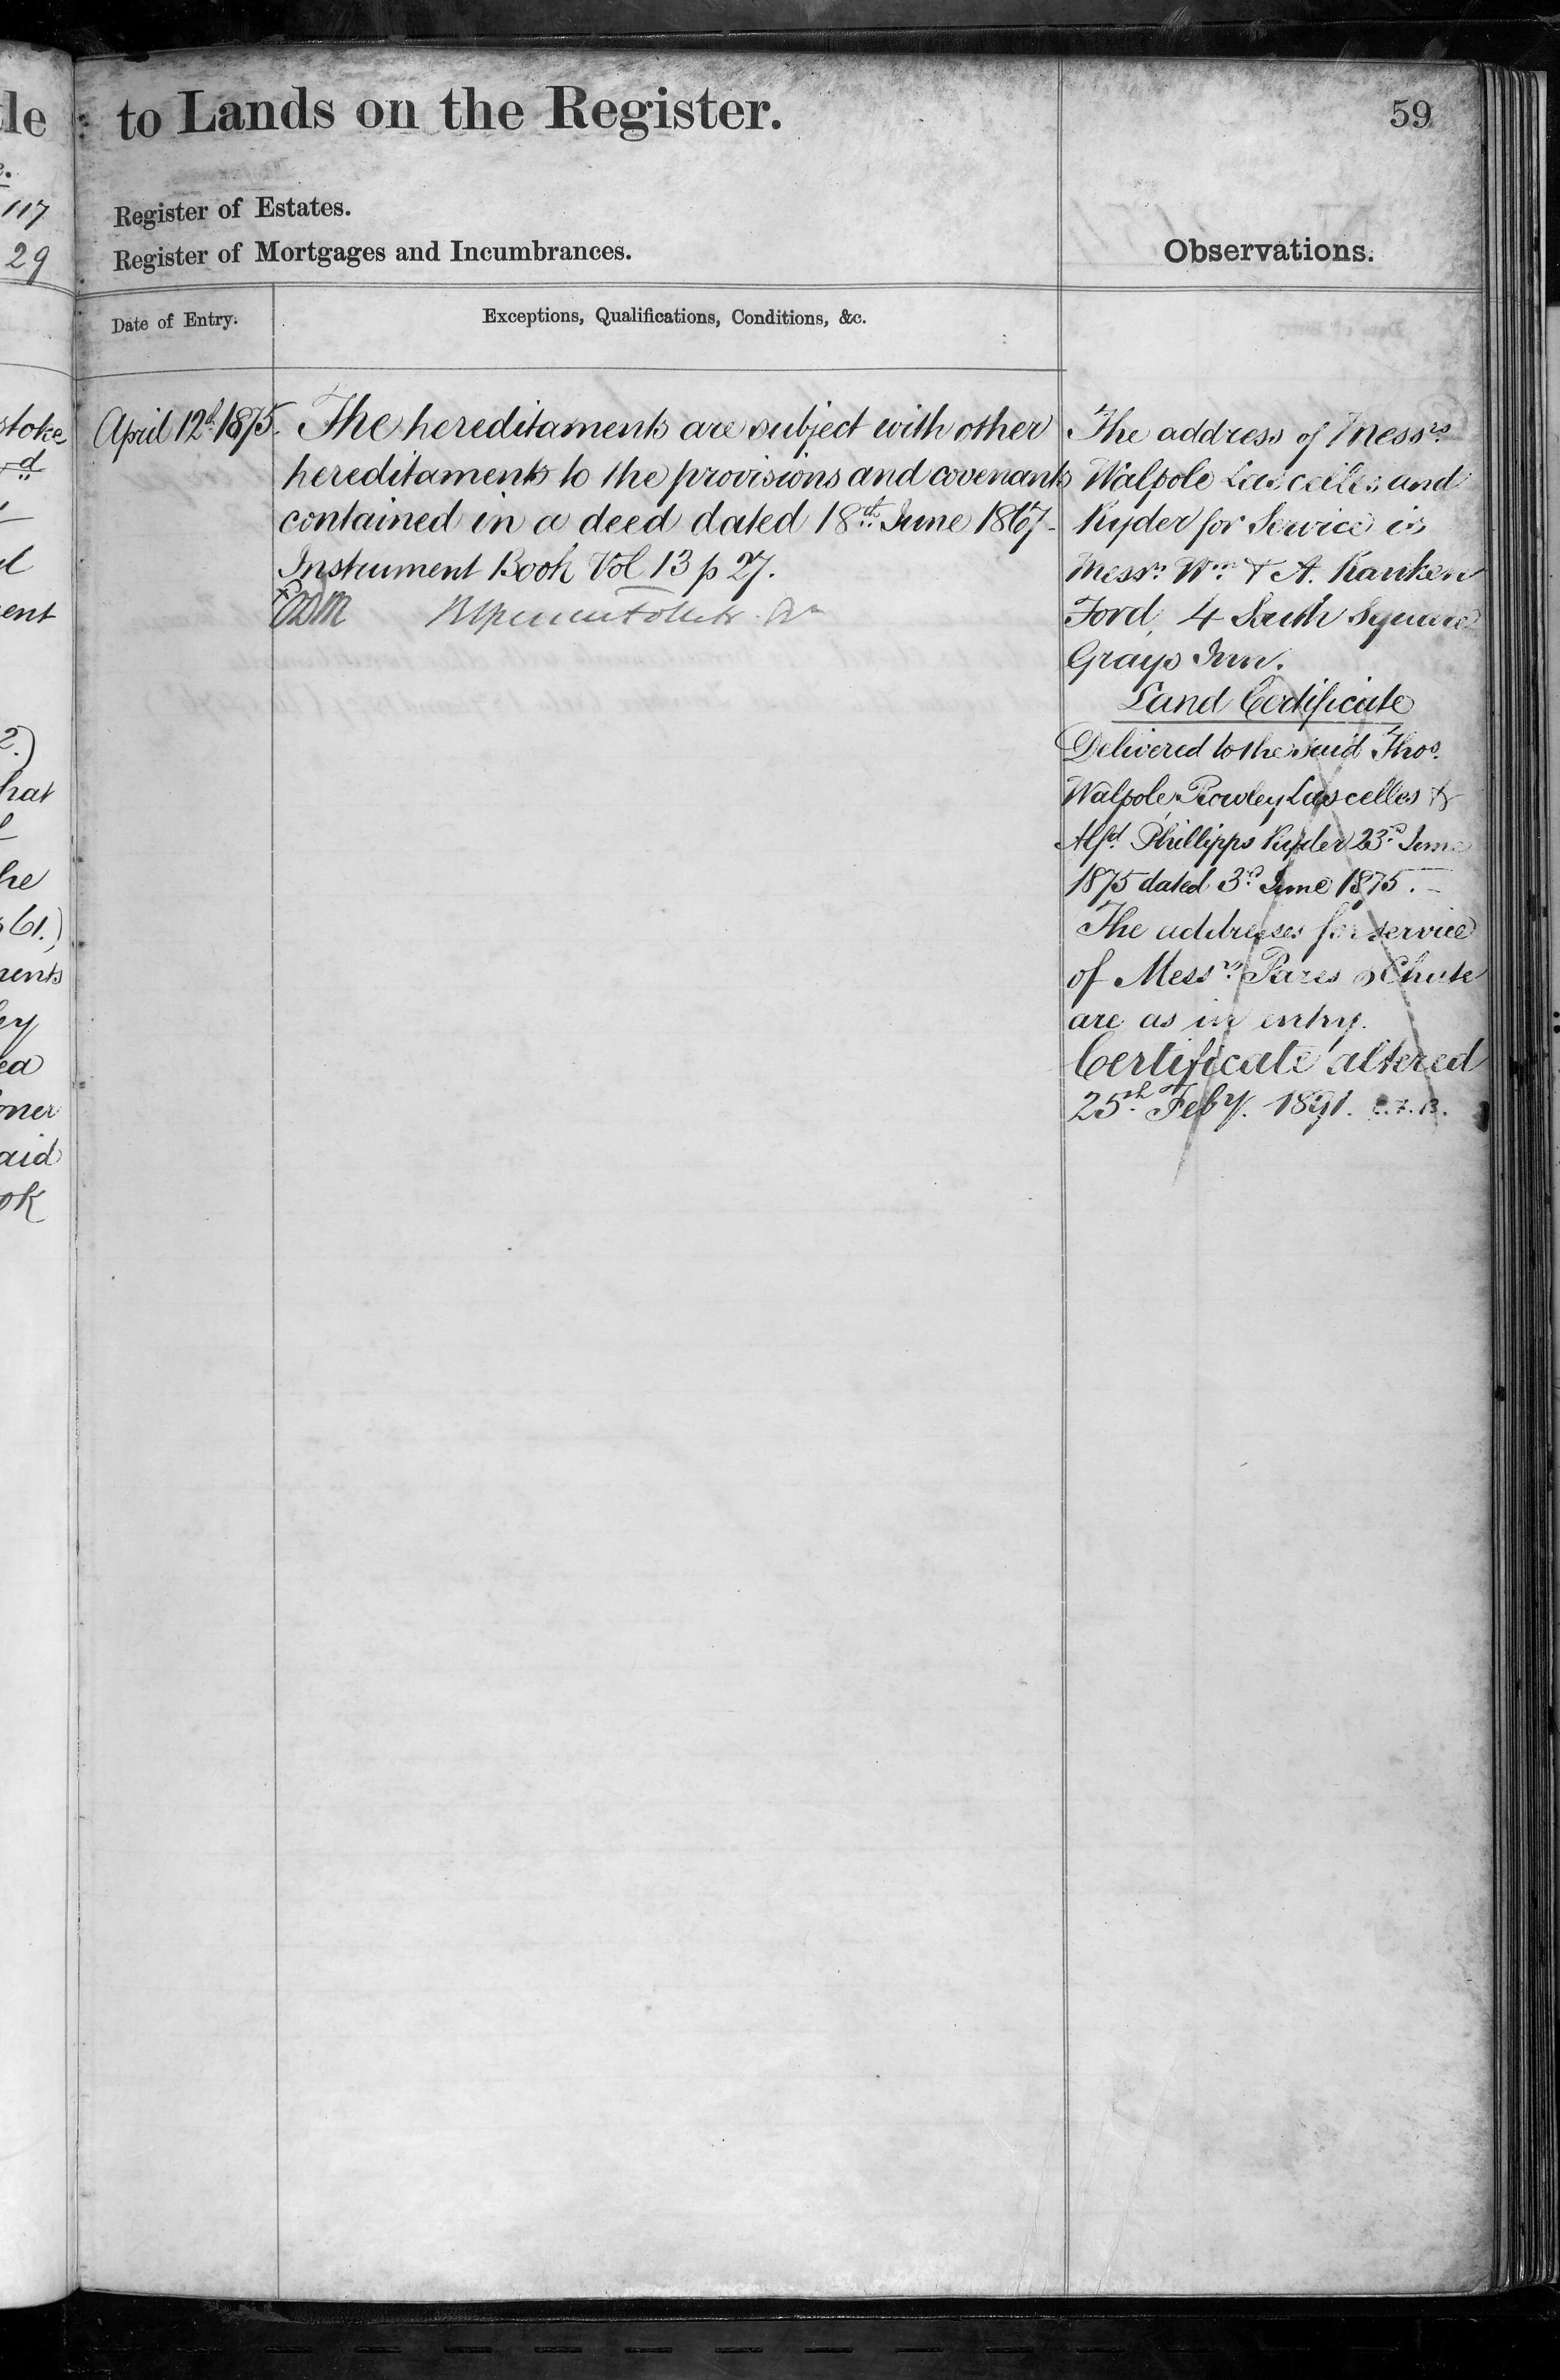 le
to Lands on the Register.
59
117
29
Register of Estates.
Register of Mortgages and Incumbrances.
Observations.
Date of Entry.
Exceptions, Qualifications, Conditions, &c.
stoke
ent
2.)
hat
he
61.)
ments
ey
ed
oner
aid
ok
April 12th 1875.
The hereditaments are subject with other
hereditaments to the provisions and covenants
contained in a deed dated 18th June 1867
Instrument Book Vol 13 p 27.
The address of Messrs
Walpole Lascelles and
Ryder for Service is
Messrs Wm & A. Ranken
Ford, 4 South Square
Grays Inn.
Land Certificate
Delivered to the said Thos.
Walpole, Rowley Lascelles &
Alfd Phillipps Ryder 23rd June
1875 dated 3rd June 1875.
The addresses for service
of Messrs Pares & Chute
are as in entry.
Certificate altered
25th Feby. 1891.